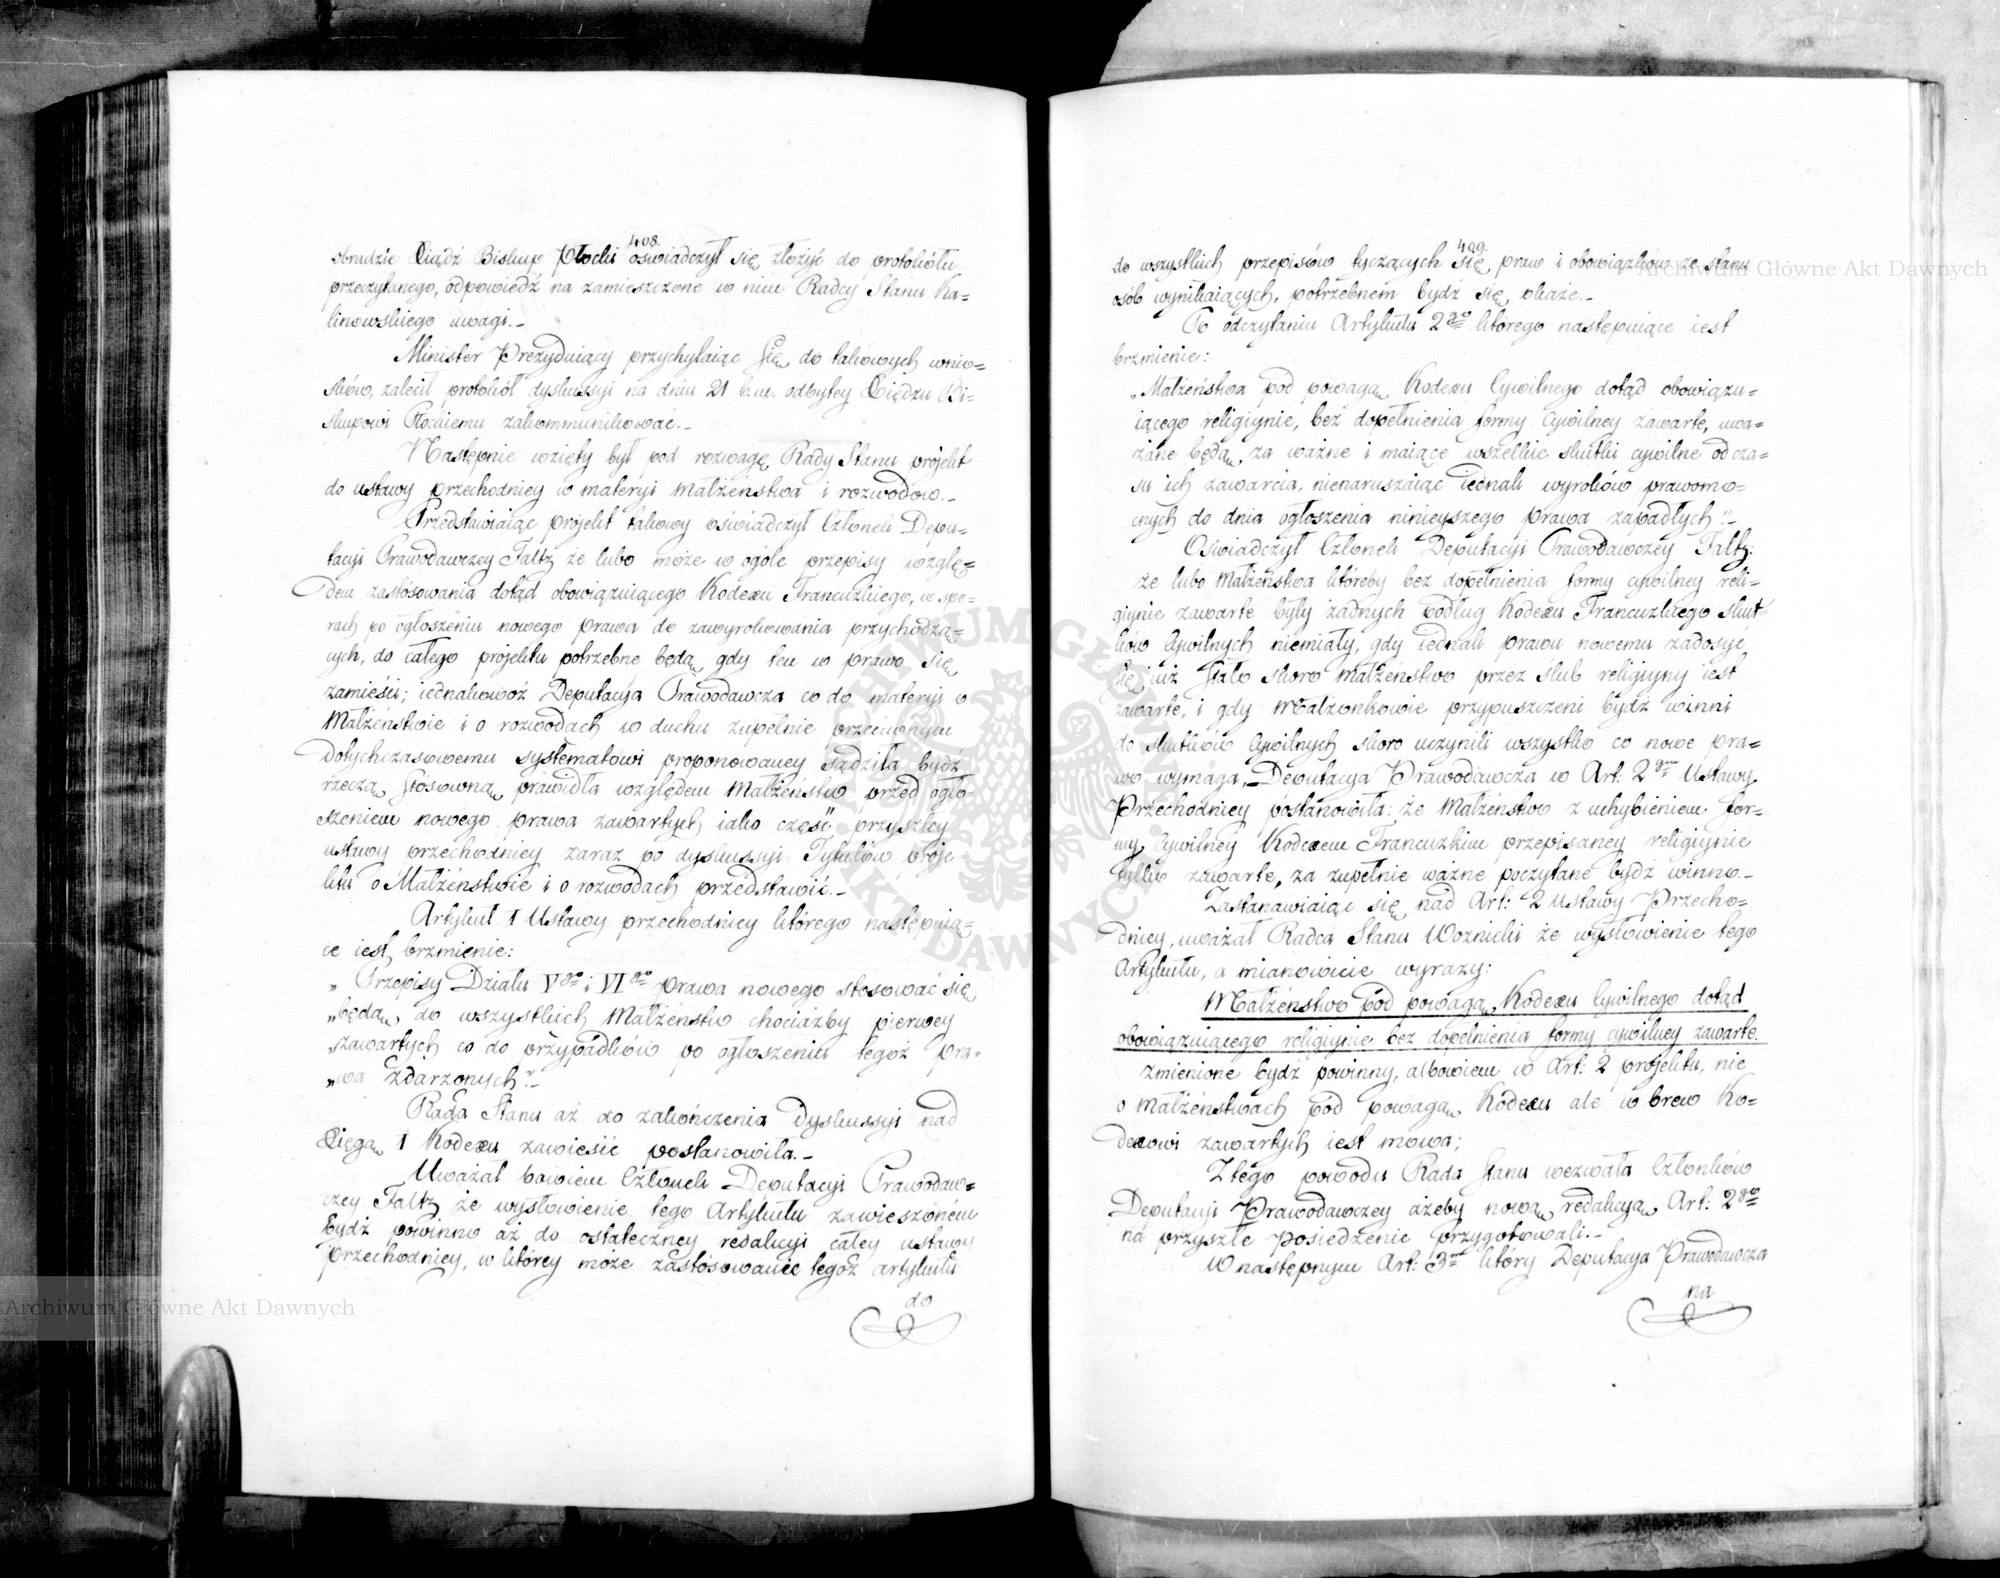 408.
obrudzie Xiądz Biskup Płocki oświadczył się złożyć do protokółu
przeczytanego, odpowiedź na zamieszczone w nim Radcy Stanu Ka=
linowskiego uwagi.-
Minister Prezyduiący przychylaiąc się do takowych wnio=
sków, zalecił protokół dyskussyi na dniu 21 b. m. odbytey Xiędzu Bi-
skupowi Płockiemu zakommunikować.-
Następnie wzięty był pod rozwagę Rady Stanu projekt
do ustawy przechodniey w materyi Małżeństwa i rozwodów.-
Przedstawiaiąc projekt takowy oświadczył Członek Depu-
tacyi Prawodawczey Faltz że lubo może w ogóle przepisy wzglę=
dem zastósowania dotąd obowiązuiącego Kodexu Francuzkiego, w spo-
rach po ogłoszeniu nowego prawa do zawyrokowania przychodzą=
cych, do całego projektu potrzebne będą, gdy ten w prawo się
zamieści; iednakowoż Deputacya Prawodawcza co do materyi o
Małżeństwie i o rozwodach w duchu zupełnie przeciwnym
dotychczasowemu systematowi proponowaney sądziła bydź
rzeczą stósowną prawidła względem Małżeństw przed ogło-
szeniem nowego prawa zawartych iako część przyszłey
ustawy przechodniey zaraz po dyskussyi Tytułów proje
ktu o Małżeństwie i o rozwodach przedstawić.-
Artykuł 1 Ustawy przechodniey którego następuią=
ce iest brzmienie:
„Przepisy Działu Vgo i VIgo prawa nowego stosować się
„będą do wszystkich Małżeństw chociażby pierwey
„zawartych co do przypadków po ogłoszeniu tegoż pra-
„wa zdarzonych".-
Rada Stanu aż do zakończenia dyskussyi nad
Xięgą 1 Kodexu zawiesić postanowiła.-
Uważał bowiem Członek Deputacyi Prawodaw=
czey Faltz że wysłowienie tego Artykułu zawieszonem
bydź powinno aż do ostateczney redakcyi całey ustawy
przechodniey, w którey może zastósowanie tegoż artykułu
do
409.
do wszystkich przepisów tyczących się praw i obowiązków ze stanu
osób wynikaiących, potrzebnem bydź się okaże.-
Po odczytaniu Artykułu 2go którego następuiące iest
brzmienie:
„Małżeństwa pod powagą Kodexu Cywilnego dotąd obowiązu-
iącego religiynie, bez dopełnienia formy Cywilney zawarte, uwa-
żane będą za ważne i maiące wszelkie skutki cywilne od cza-
su ich zawarcia, nienaruszaiąc iednak wyroków prawomo=
cnych do dnia ogłoszenia ninieyszego prawa zapadłych".-
Oświadczył Członek Deputacyi Prawodawczey Faltz:
że lubo Małżeństwa któreby bez dopełnienia formy cywilney reli-
giynie zawarte były żadnych podług Kodexu Francuzkiego skut
ków Cywilnych niemiały, gdy iednak prawu nowemu zadosyć
się iuż stało skoro małżeństwo przez ślub religiyny iest
zawarte, i gdy Małżonkowie przypuszczeni bydź winni
do skutków Cywilnych skoro uczynili wszystko co nowe pra=
wo wymaga, Deputacya Prawodawcza w Art: 2gim Ustawy
Przechodniey postanowiła: że Małżeństwo z uchybieniem for-
my Cywilney Kodexem Francuzkim przepisaney religiynie
tylko zawarte, za zupełnie ważne poczytane bydź winno.-
Zastanawiaiąc się nad Art: 2 Ustawy Przecho-
dniey, uważał Radca Stanu Woznicki że wysłowienie tego
Artykułu, a mianowicie wyrazy:
Małżeństwo pod powagą Kodexu Cywilnego dotąd
obowiązuiącego religiynie bez dopełnienia formy cywilney zawarte.
zmienione bydź powinny, albowiem w Art: 2 projektu, nie
o małżeństwach pod powagą Kodexu ale w brew Ko=
dexowi zawartych iest mowa;
Z tego powodu Rada Stanu wezwała Członków
Deputacyi Prawodawczey ażeby nową redakcyą Art: 2go
na przyszłe posiedzenie przygotowali.-
W następnym Art: 3m który Deputacya Prawodawcza
na
Archiwum Główne Akt Dawnych
Archiwum Główne Akt Dawnych
ARCHIWUM GŁÓWNE AKT DAWNYCH